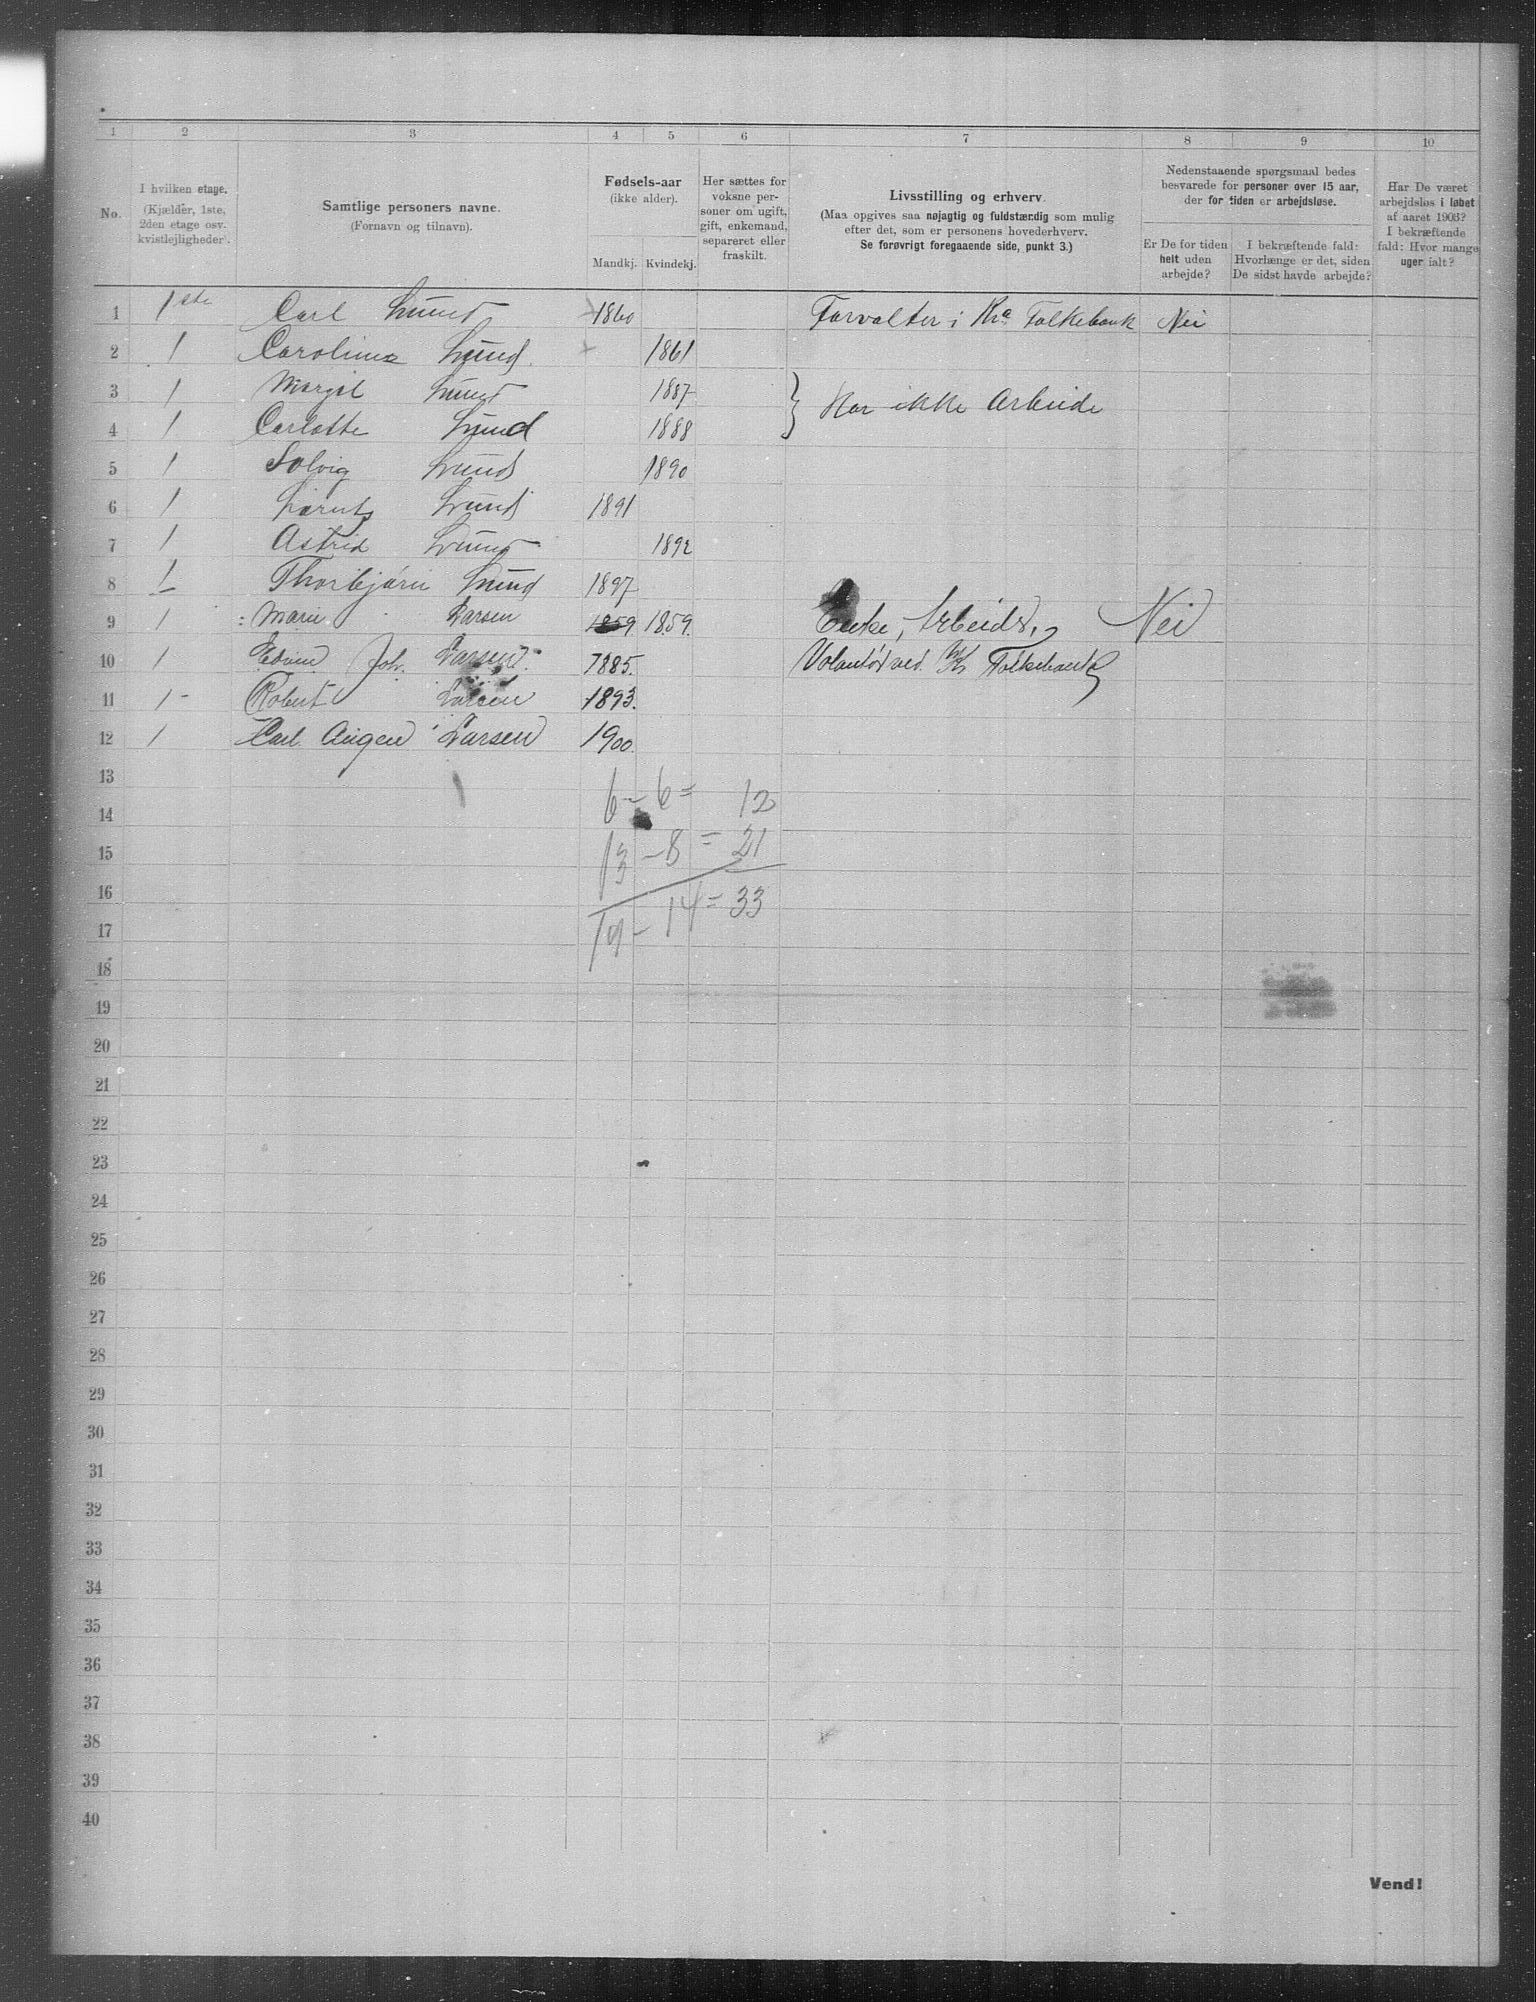 1 2 3 4 5 6 7 8 9 10
No.
I hvilken etage.
(Kjælder, 1ste,
2den etage osv.
kvistlejligheder).
Samtlige personers navne.
(Fornavn og tilnavn).
Fødsels-aar
(ikke alder).
Mandkj. Kvindekj.
Her sættes for
voksne per-
soner om ugift,
gift, enkemand,
separeret eller
fraskilt.
Livsstilling og erhverv.
(Maa opgives saa nøjagtig og fuldstændig som mulig
efter det, som er personens hovederhverv.
Se forøvrigt foregaaende side, punkt 3.)
Nedenstaaende spørgsmaal bedes
besvarede for personer over 15 aar,
der for tiden er arbejdsløse.
Er De for tiden
helt uden
arbejde?
I bekræftende fald:
Hvorlænge er det, siden
De sidst havde arbejde?
Har De været
arbejdsløs i løbet
af aaret 1903?
I bekræftende
fald: Hvor mange
uger ialt?
1 1ste Carl Lund 1860 Forvalter i Kra Folkebank Nei
2 1 Caroline Lund 1861
3 1 Margit Lund 1887 } Har ikke Arbeide
4 1 Carlotte Lund 1888
5 1 Solvig Lund 1890
6 1 Lund 1891
7 1 Astrid Lund 1892
8 1 Thorbjørn Lund 1897
9 1 Marie Larsen 1859 1859. Enke, Arbeids. Nei
10 1 Edvin Joh. Larsen. 1885. Volontør ved Folkebank
11 1 - Robert Larsen 1893.
12 1 Carl Larsen 1900.
13
6 - 6 = 12
14
13 - 8 = 21
15
16
19 - 14 = 33
17
18
19
20
21
22
23
24
25
26
27
28
29
30
31
32
33
34
35
36
37
38
39
40
Vend!